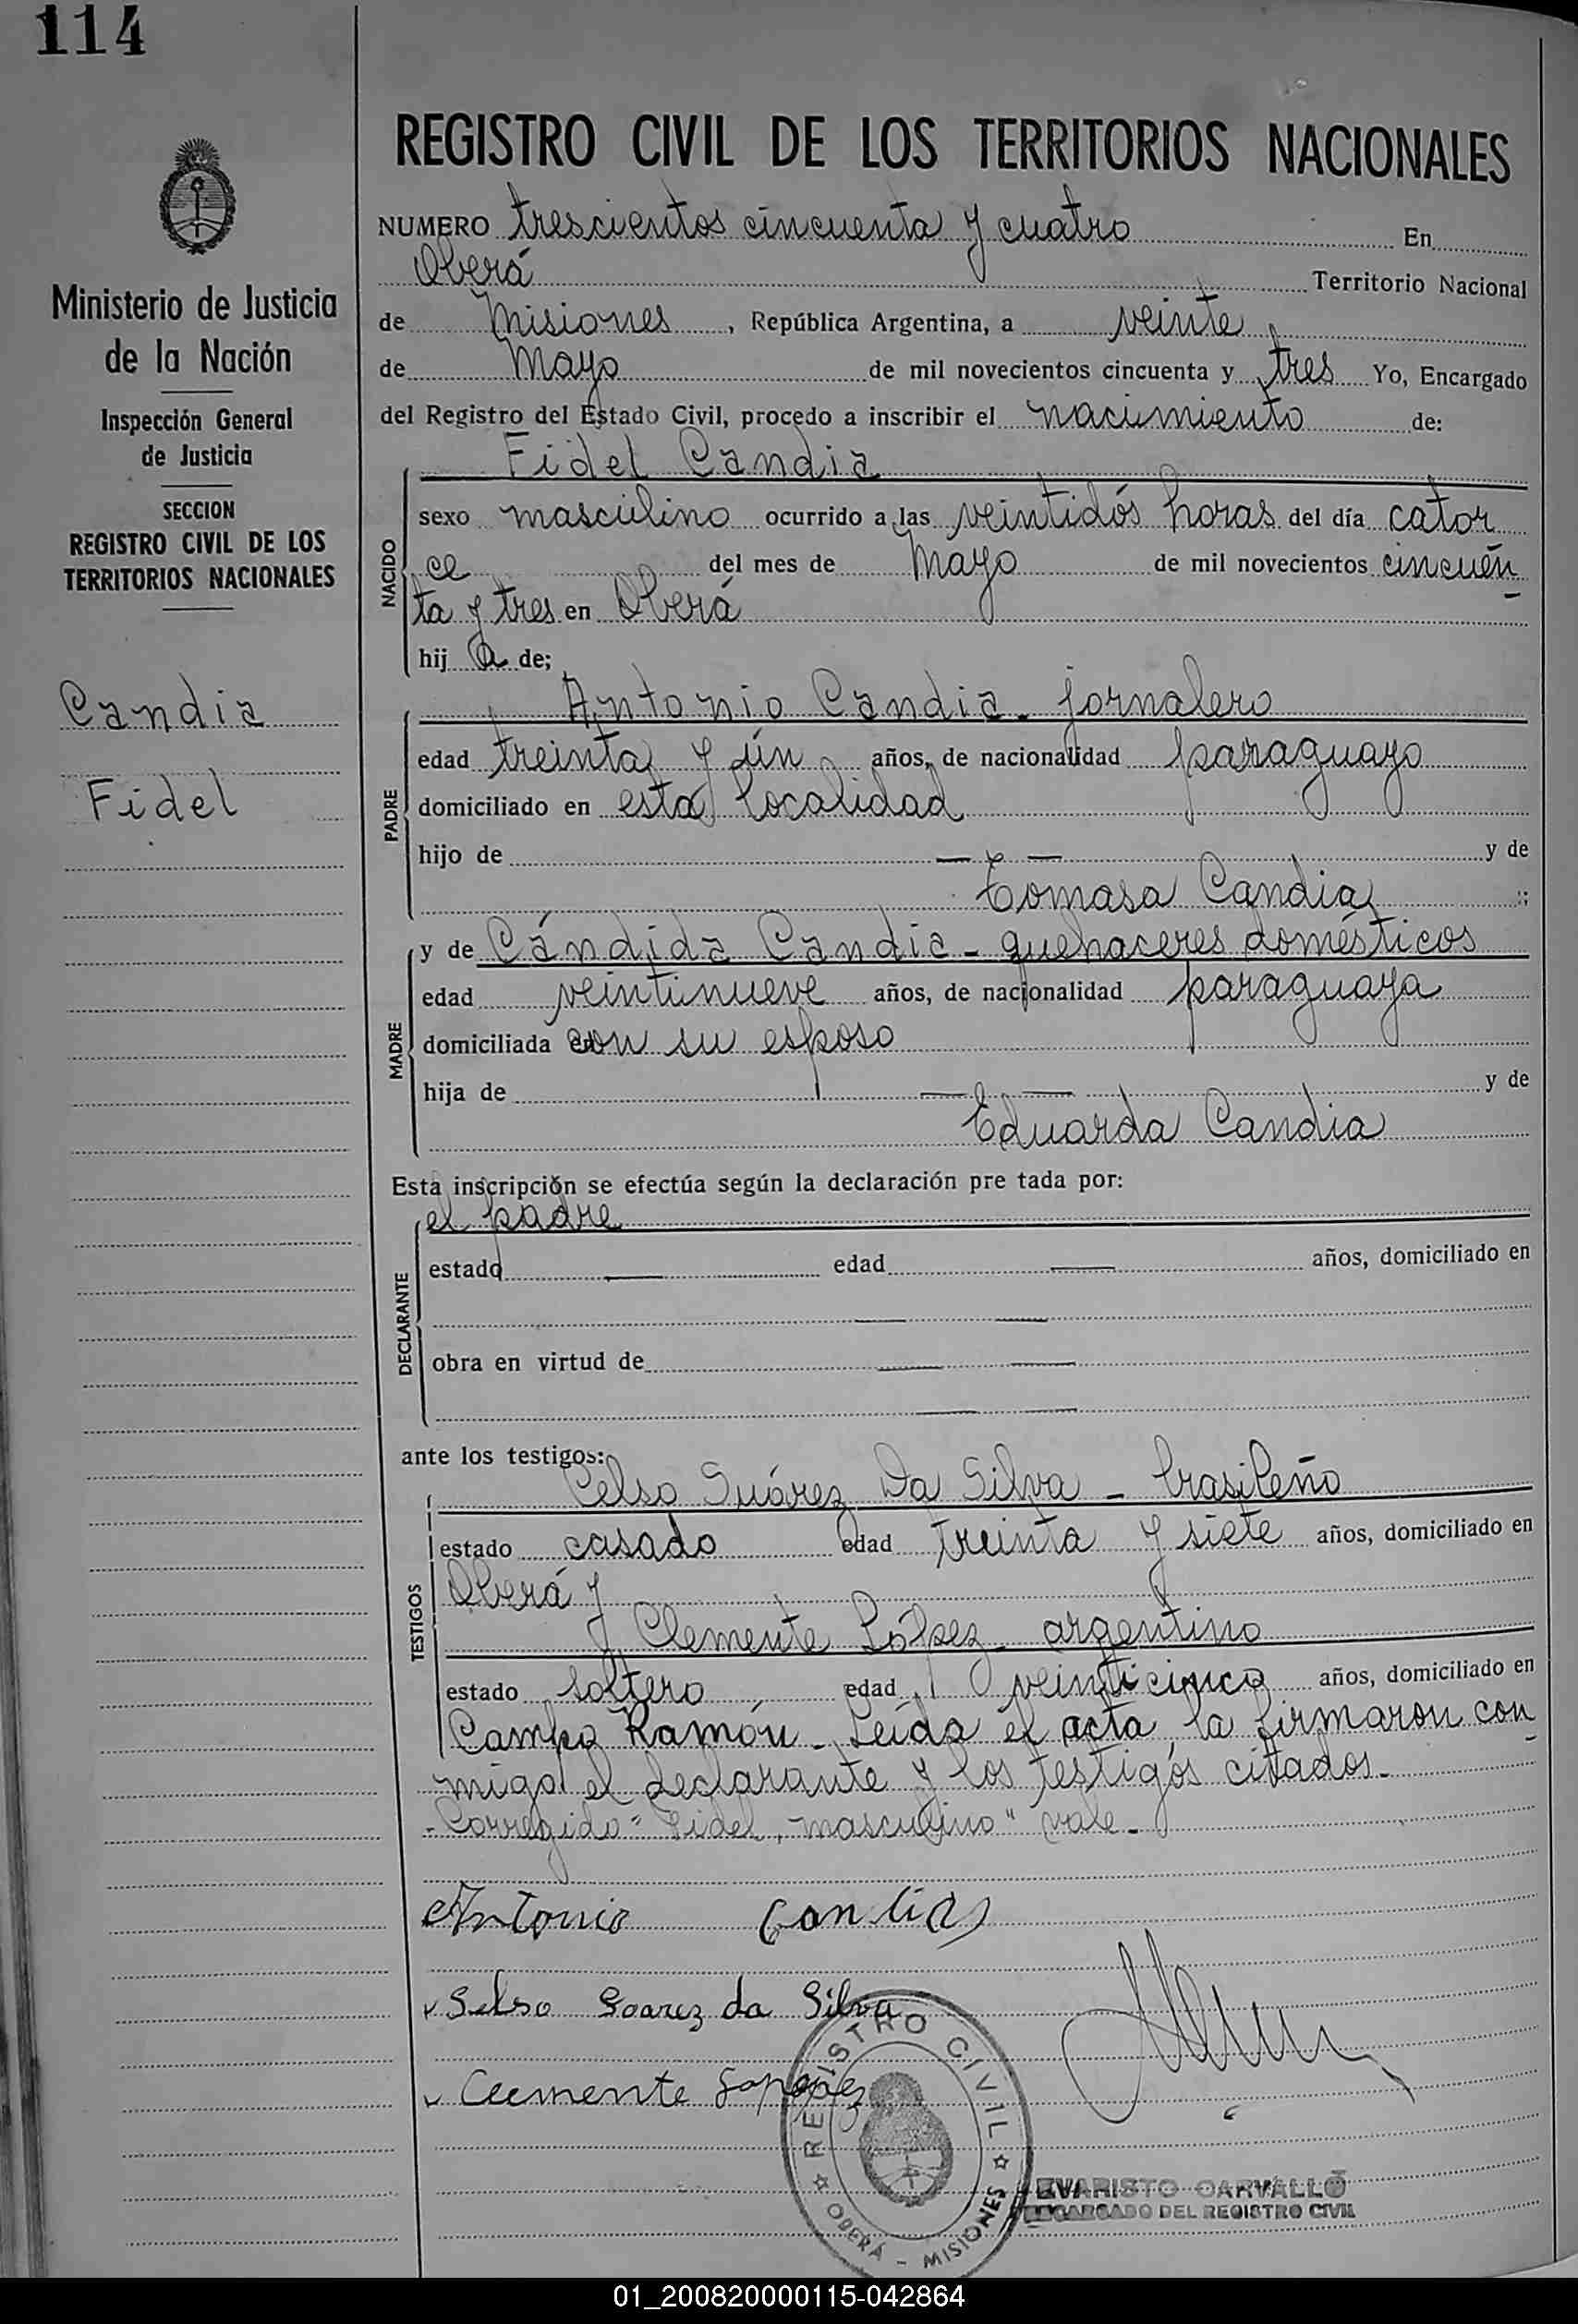 114
REGISTRO CIVIL DE LOS TERRITORIOS NACIONALES
Ministerio de Justicia
de la Nación
Inspección General
de Justicia
SECCION
REGISTRO CIVIL DE LOS
TERRITORIOS NACIONALES
Candia
Fidel
NUMERO trescientos cincuenta y cuatro En
Oberá Territorio Nacional
de Misiones, República Argentina, a veinte
de Mayo de mil novecientos cincuenta y tres Yo, Encargado
del Registro del Estado Civil, procedo a inscribir el nacimiento de:
NACIDO
Fidel Candia
sexo masculino ocurrido a las veintidós horas del día cator
ce del mes de Mayo de mil novecientos cincuen
ta y tres en Oberá
hij a de;
PADRE
Antonio Candia - jornalero
edad treinta y un años, de nacionalidad paraguayo
domiciliado en esta localidad
hijo de — — y de
Tomasa Candia
MADRE
y de Cándida Candia - quehaceres domésticos
edad veintinueve años, de nacionalidad paraguaya
domiciliada con su esposo
hija de — — y de
Eduarda Candia
Esta inscripción se efectúa según la declaración pre tada por:
DECLARANTE
el padre
estado — edad — años, domiciliado en
— —
obra en virtud de — —
— —
ante los testigos:
TESTIGOS
Celso Suárez Da Silva - brasileño
estado casado edad treinta y siete años, domiciliado en
Oberá y
Clemente López - argentino
estado soltero edad veinticinco años, domiciliado en
Campo Ramón - Leída el acta, la firmaron con
migo el declarante y los testigos citados.-
-Corregido "Fidel, masculino" vale.-
Antonio Candia
Selso Soarez da Silva
Clemente Lopez
REGISTRO CIVIL
OBERÁ - MISIONES
EVARISTO CARVALLO
ENCARGADO DEL REGISTRO CIVIL
01_200820000115-042864